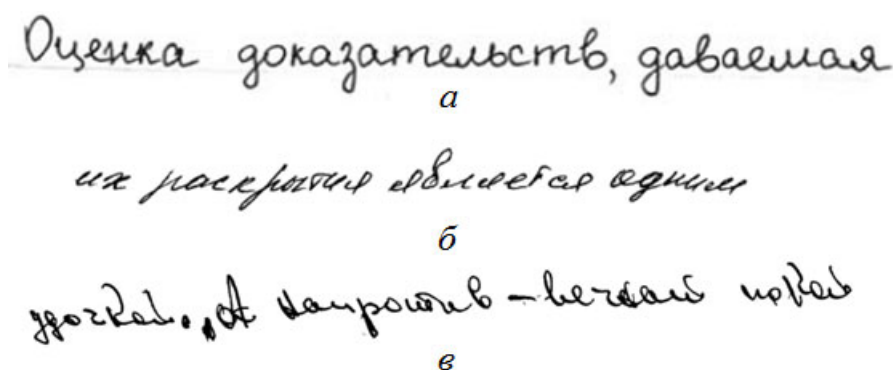 Оценка доказательств, даваемая
а
их раскрытия является одним
б
удочкой. А напротив – вечный покой
в